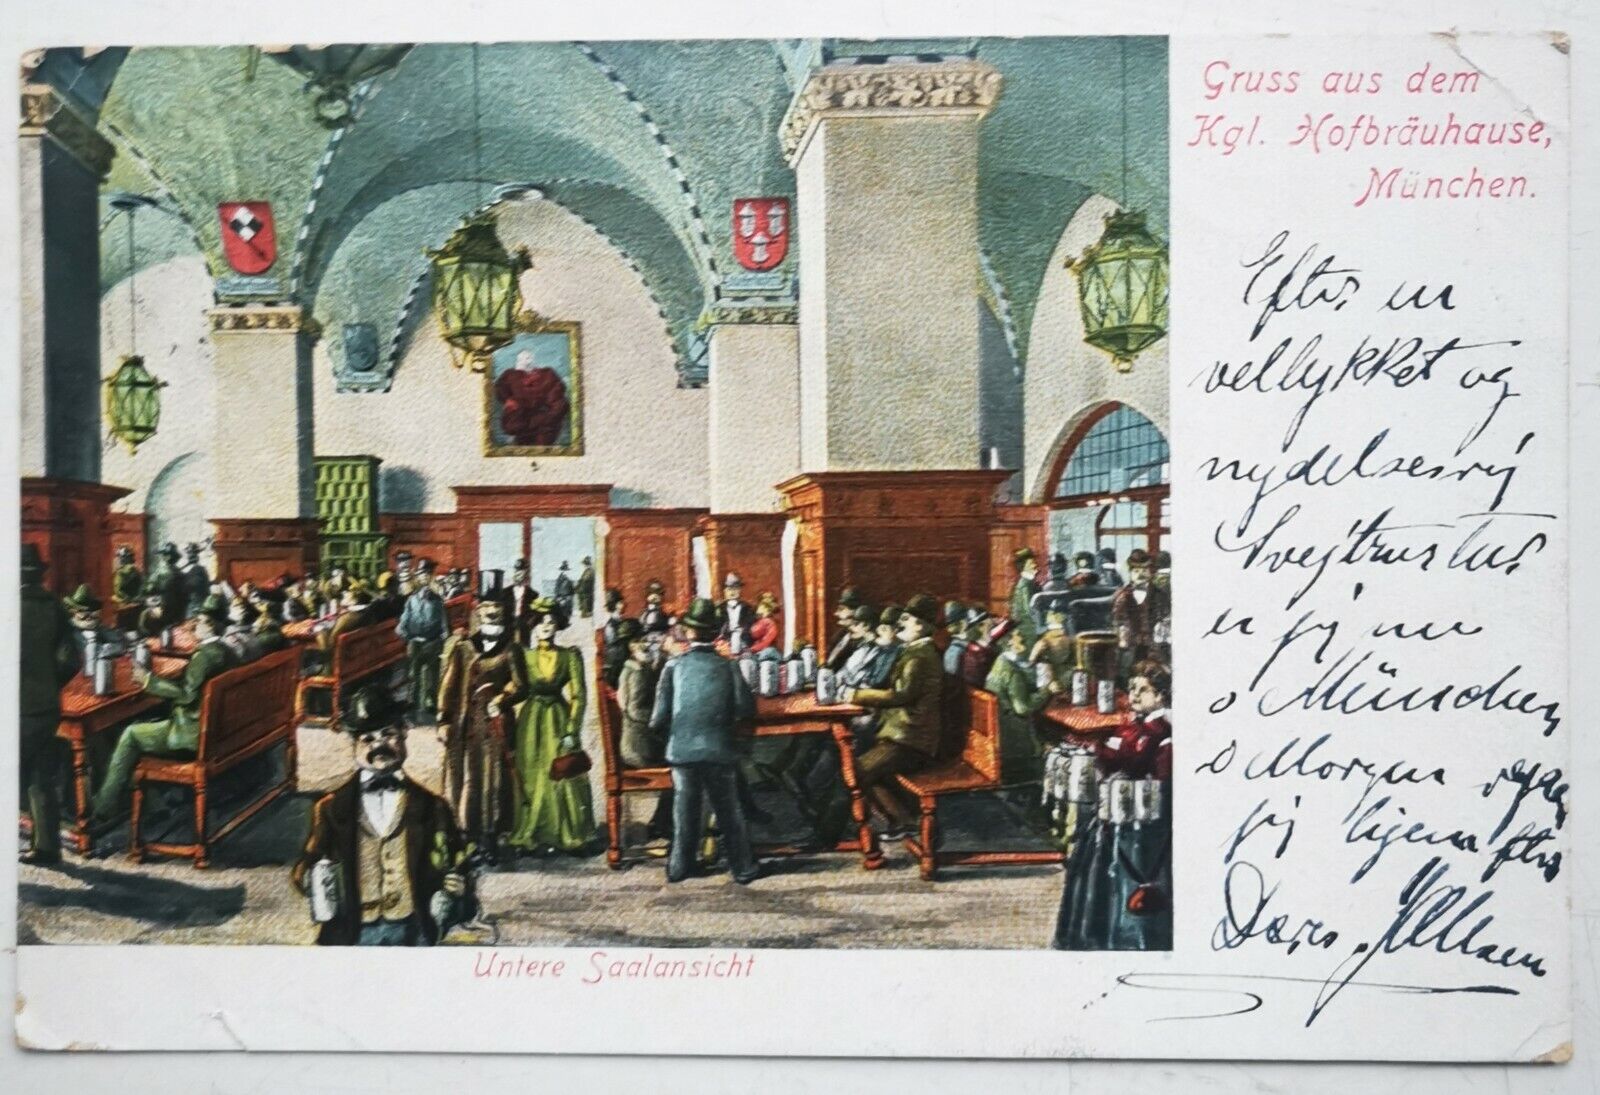 Gruss aus dem
Kgl. Hofbräuhause,
München.
Efter en
vellykket og
nydelsesrig
Svejtzustur
er jeg nu
i München
Morgen rejser
jeg hjem efter
Deres
Untere Saalansicht